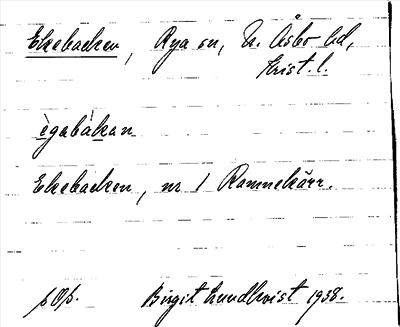 Ekebacken, Rya sn, N. Åsbo hd,
Krist. l.
ègabàkan
Ekebacken, nr 1 Ramnekärr.
Birgit Lundkvist 1938.